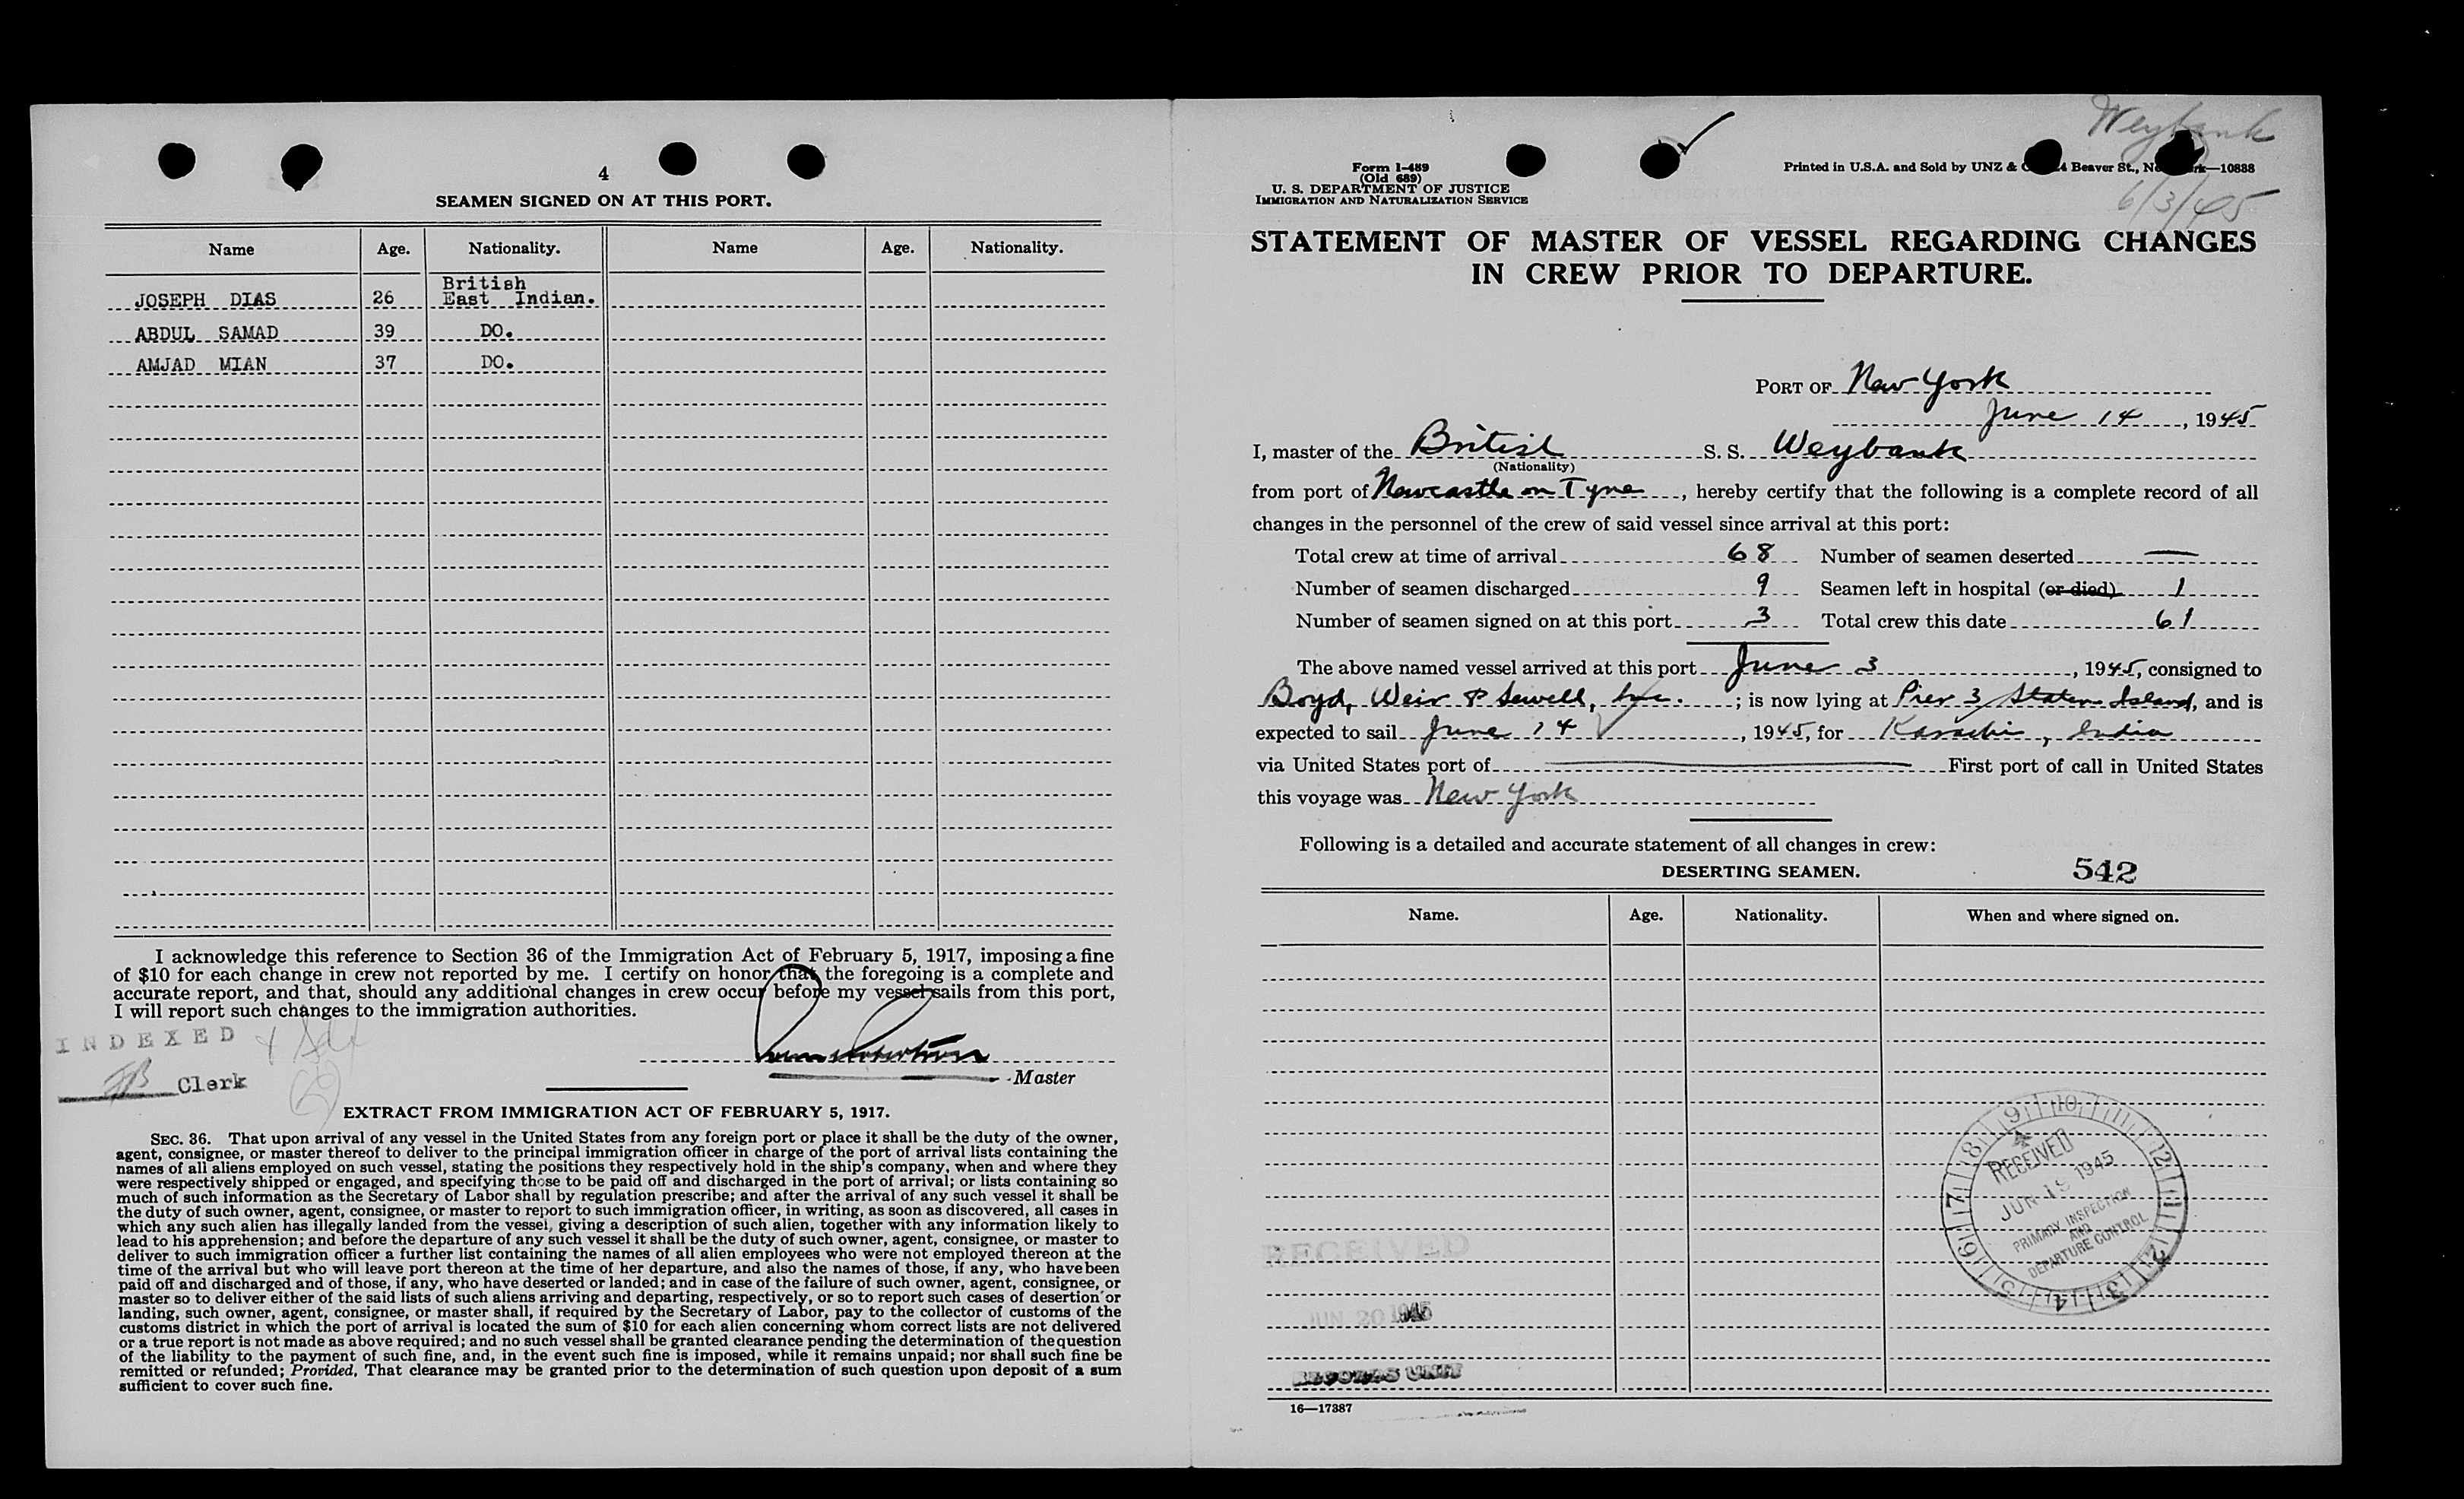 4
SEAMEN SIGNED ON AT THIS PORT.
Name Age. Nationality. Name Age. Nationality.
JOSEPH DIAS 26 British East Indian.
ABDUL SAMAD 39 DO.
AMJAD MIAN 37 DO.
I acknowledge this reference to Section 36 of the Immigration Act of February 5, 1917, imposing a fine
of $10 for each change in crew not reported by me. I certify on honor that the foregoing is a complete and
accurate report, and that, should any additional changes in crew occur before my vessel sails from this port,
I will report such changes to the immigration authorities.
INDEXED
Clerk
Master
EXTRACT FROM IMMIGRATION ACT OF FEBRUARY 5, 1917.
SEC. 36. That upon arrival of any vessel in the United States from any foreign port or place it shall be the duty of the owner,
agent, consignee, or master thereof to deliver to the principal immigration officer in charge of the port of arrival lists containing the
names of all aliens employed on such vessel, stating the positions they respectively hold in the ship's company, when and where they
were respectively shipped or engaged, and specifying those to be paid off and discharged in the port of arrival; or lists containing so
much of such information as the Secretary of Labor shall by regulation prescribe; and after the arrival of any such vessel it shall be
the duty of such owner, agent, consignee, or master to report to such immigration officer, in writing, as soon as discovered, all cases in
which any such alien has illegally landed from the vessel, giving a description of such alien, together with any information likely to
lead to his apprehension; and before the departure of any such vessel it shall be the duty of such owner, agent, consignee, or master to
deliver to such immigration officer a further list containing the names of all alien employees who were not employed thereon at the
time of the arrival but who will leave port thereon at the time of her departure, and also the names of those, if any, who have been
paid off and discharged and of those, if any, who have deserted or landed; and in case of the failure of such owner, agent, consignee, or
master so to deliver either of the said lists of such aliens arriving and departing, respectively, or so to report such cases of desertion or
landing, such owner, agent, consignee, or master shall, if required by the Secretary of Labor, pay to the collector of customs of the
customs district in which the port of arrival is located the sum of $10 for each alien concerning whom correct lists are not delivered
or a true report is not made as above required; and no such vessel shall be granted clearance pending the determination of the question
of the liability to the payment of such fine, and, in the event such fine is imposed, while it remains unpaid; nor shall such fine be
remitted or refunded; Provided, That clearance may be granted prior to the determination of such question upon deposit of a sum
sufficient to cover such fine.
Weybank
6/3/45
Form I-489
(Old 689)
U. S. DEPARTMENT OF JUSTICE
IMMIGRATION AND NATURALIZATION SERVICE
Printed in U.S.A. and Sold by UNZ & Beaver St., —10888
STATEMENT OF MASTER OF VESSEL REGARDING CHANGES
IN CREW PRIOR TO DEPARTURE.
PORT OF New York
June 14, 1945
I, master of the British S. S. Weybank
(Nationality)
from port of Newcastle on Tyne, hereby certify that the following is a complete record of all
changes in the personnel of the crew of said vessel since arrival at this port:
Total crew at time of arrival 68 Number of seamen deserted —
Number of seamen discharged 9 Seamen left in hospital (or died) 1
Number of seamen signed on at this port 3 Total crew this date 61
The above named vessel arrived at this port June 3, 1945, consigned to
Boyd, Weir & Sewell, Inc.; is now lying at Pier 3, Staten Island, and is
expected to sail June 14, 1945, for Karachi, India
via United States port of — First port of call in United States
this voyage was New York
Following is a detailed and accurate statement of all changes in crew:
DESERTING SEAMEN. 542
Name. Age. Nationality. When and where signed on.
9 10 11 12 1 2 3 4 5 6 7 8
RECEIVED
JUN 19 1945
PRIMARY INSPECTION
AND
DEPARTURE CONTROL
RECEIVED
JUN 20 1945
RECORDS UNIT
16—17387